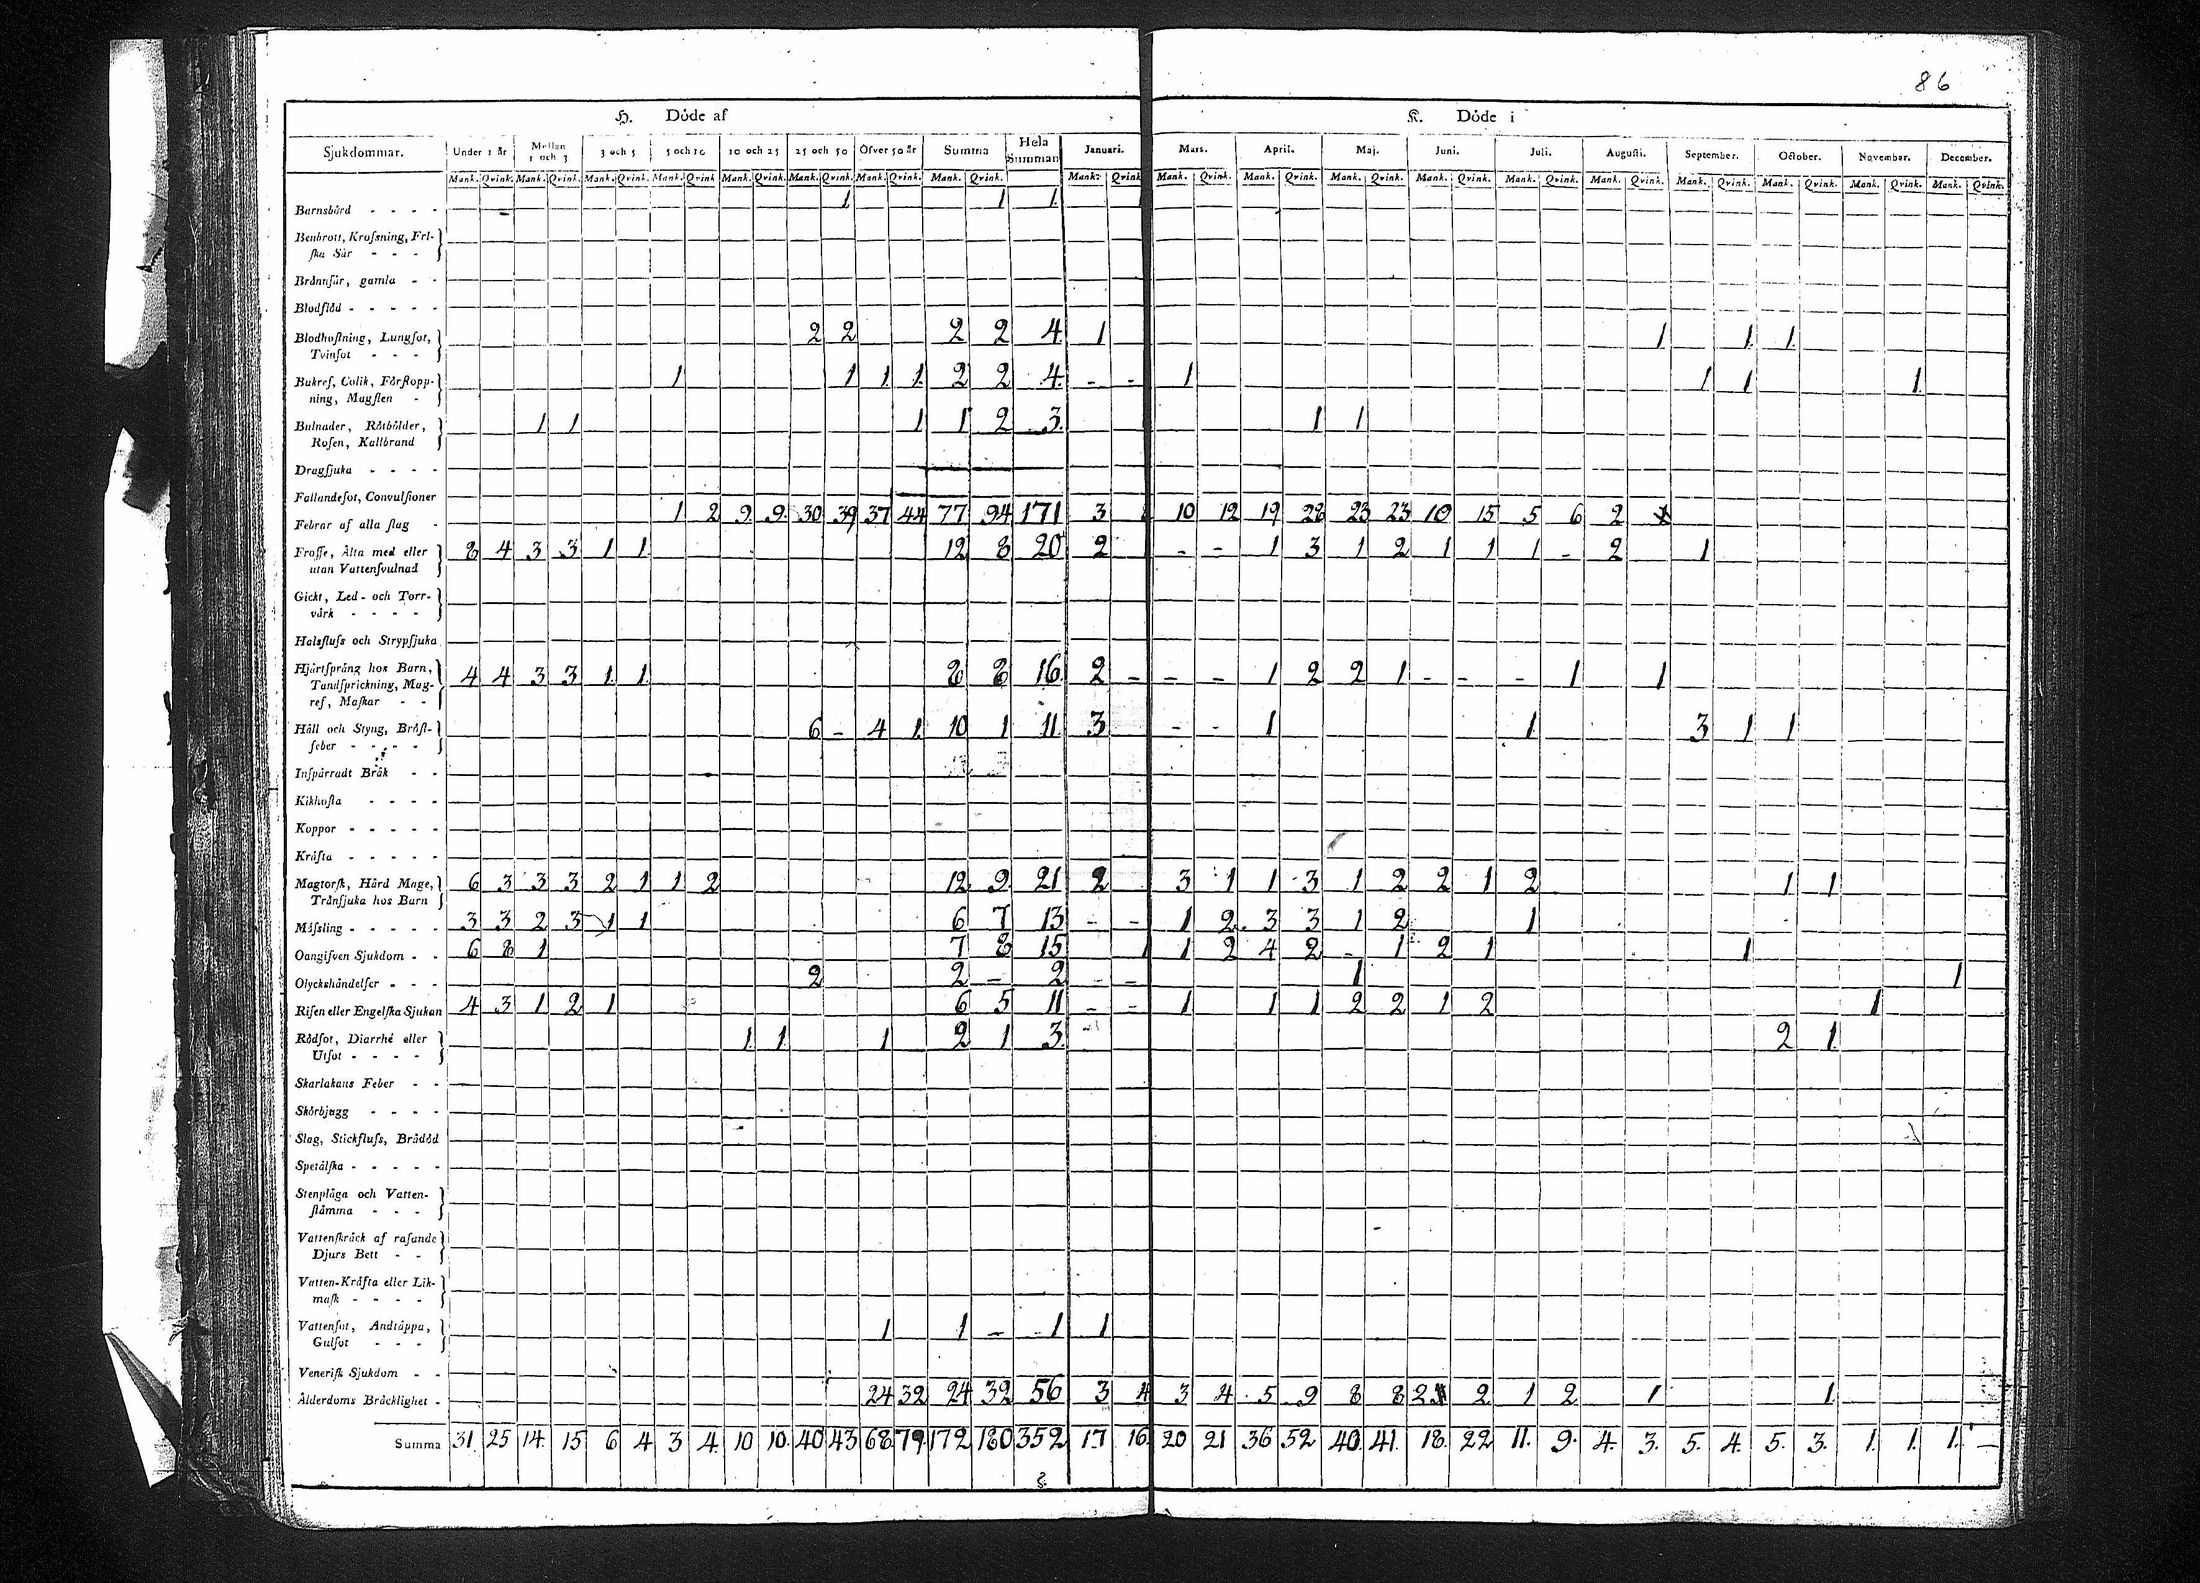 86
H. Döde af K. Döde i
Sjukdommar. Under 1 år Mellan 1 och 3 3 och 5 5 och 10 10 och 25 25 och 50 Öfver 50 år Summa Hela Summan Januari. Mars. April. Maj. Juni. Juli. Augusti. September. October. November. December.
Mank. Qvink. Mank. Qvink. Mank. Qvink. Mank. Qvink Mank. Qvink. Mank. Qvink. Mank. Qvink. Mank. Qvink. Mank. Qvink Mank. Qvink. Mank. Qvink. Mank. Qvink. Mank. Qvink. Mank. Qvink. Mank. Qvink. Mank. Qvink. Mank. Qvink. Mank. Qvink. Mank. Qvink.
Barnsbörd - - - - 1 1 1.
Benbrott, Krossning, Fri-
ska Sår - - -
Brännsår, gamla - -
Blodflöd - - - - -
Blodhostning, Lungsot, 2 2 2 2 4 1 1 1 1
Tvinsot - - -
Bukref, Colik, Förstopp- 1 1 1 1 2 2 4 - - 1 1 1 1
ning, Magsten -
Bulnader, Rötbölder, 1 1 1 1 2 3. 1 1
Rosen, Kallbrand
Dragsjuka - - - -
Fallandesot, Convulsioner
Febrar af alla slag - 1 2 9. 9. 30 39 37 44 77 94 171 3 10 12 19 28 23 23 10 15 5 6 2
Frosse, Älta med eller 8 4 3 3 1 1 12 8 20 2 - - 1 3 1 2 1 1 1 - 2 1
utan Vattensvulnad
Gickt, Led- och Torr-
värk - - - -
Halsfluss och Strypsjuka
Hjärtsprång hos Barn, 4 4 3 3 1 1 8 8 16 2 - - - 1 2 2 1 - - - 1 1
Tandsprickning, Mag-
ref, Maskar - -
Håll och Styng, Bröst- 6 - 4 1 10 1 11 3 - - 1 1 3 1 1
feber - - - -
Inspärradt Bråk - -
Kikhosta - - - -
Koppor - - - - -
Kräfta - - - - -
Magtorsk, Hård Mage, 6 3 3 3 2 1 1 2 12 9 21 2 3 1 1 3 1 2 2 1 2 1 1
Trånsjuka hos Barn
Mässling - - - - - 3 3 2 3 1 1 6 7 13 - - 1 2 3 3 1 2 1
Oangifven Sjukdom - - 6 8 1 7 8 15 1 1 2 4 2 - 1 2 1 1
Olyckshändelser - - - 2 2 - 2 - - 1 1
Risen eller Engelska Sjukan 4 3 1 2 1 6 5 11 - - 1 1 1 2 2 1 2 1
Rödsot, Diarrhé eller 1 1 1 2 1 3. 2 1
Utsot - - - -
Skarlakans Feber - -
Skörbjugg - - - -
Slag, Stickfluss, Brådöd
Spetälska - - - - -
Stenplåga och Vatten-
stämma - - -
Vattenskräck af rasande
Djurs Bett - -
Vatten-Kräfta eller Lik-
mask - - - -
Vattensot, Andtäppa, 1 1 - 1 1
Gulsot - - -
Venerisk Sjukdom - -
Ålderdoms Bräcklighet - 24 32 24 32 56 3 4 3 4 5 9 8 8 2 2 1 2 1 1
Summa 31 25 14. 15 6 4 3 4. 10 10. 40 43 68. 79. 172 180 352 17 16. 20 21 36 52 40 41. 18. 22 11. 9. 4. 3. 5. 4. 5. 3. 1. 1. 1. -